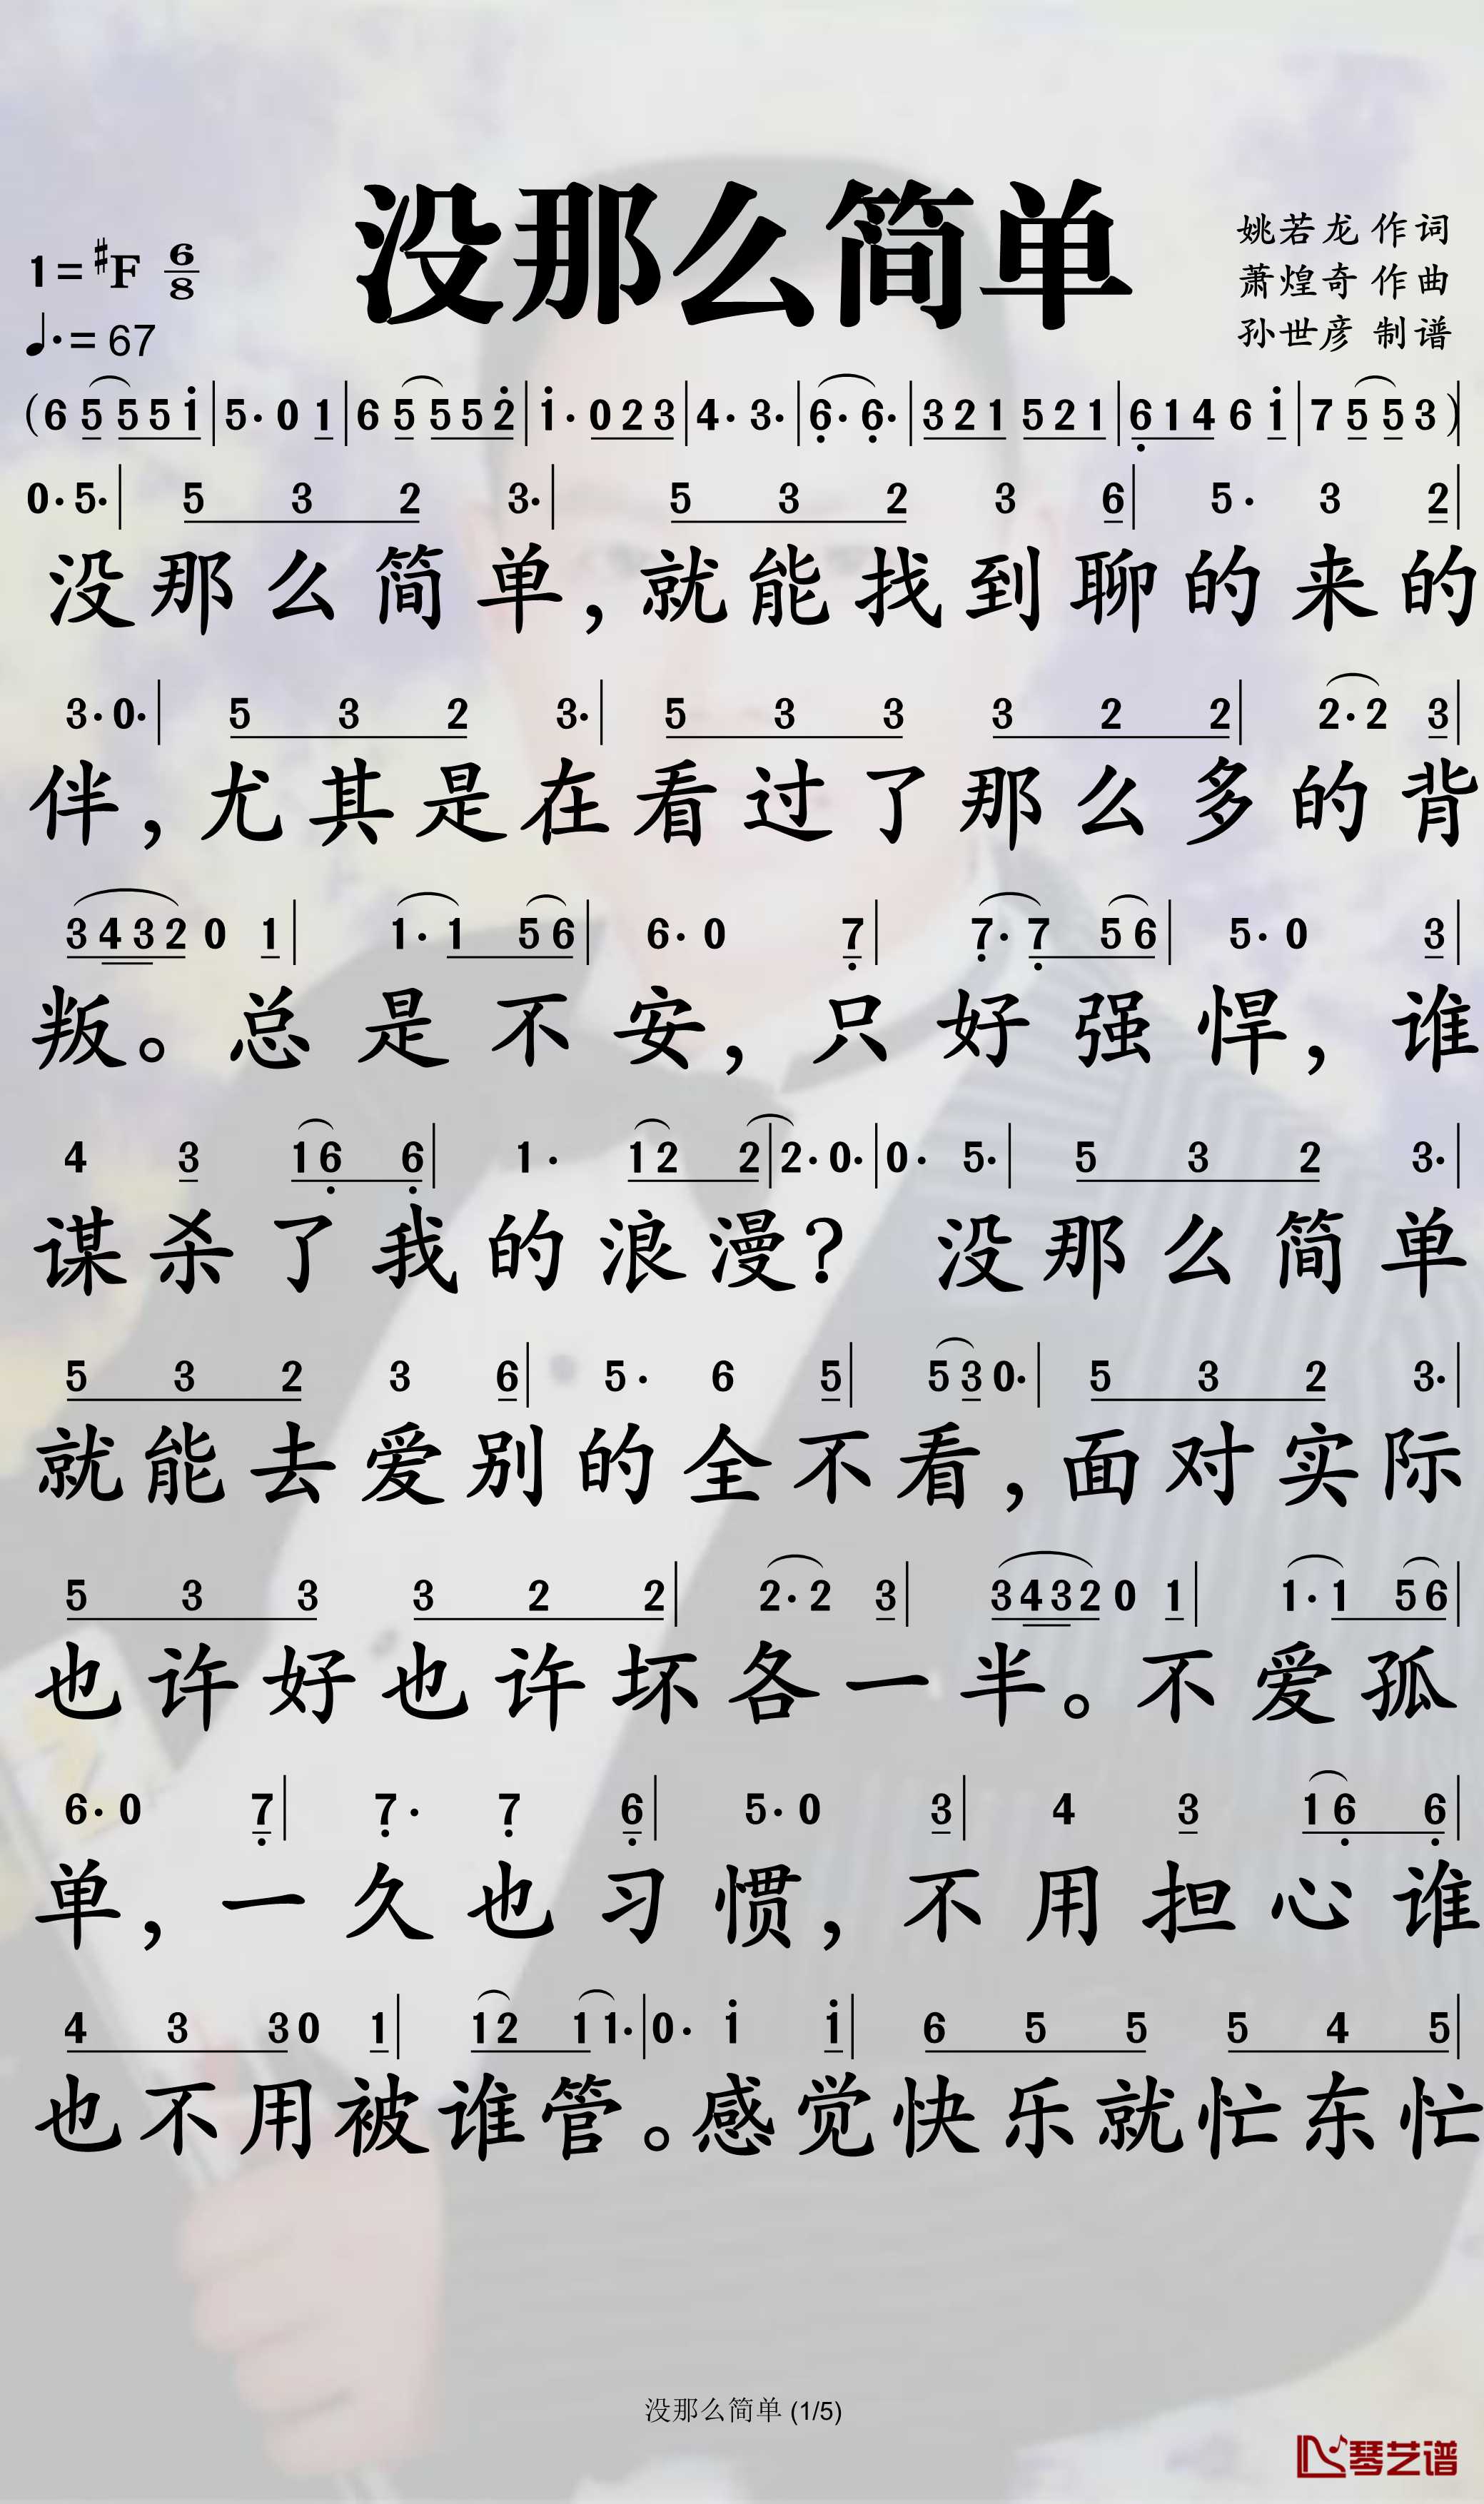 没那么简单
姚若龙 作词
萧煌奇 作曲
孙世彦 制谱
1=#F 6/8
♩.=67
(6 5 5 5 i|5· 0 1|6 5 5 5 2̇|i· 0 2 3|4· 3·|6̣· 6̣·|3 2 1 5 2 1|6̣ 1 4 6 i|7 5 5 3)|
0· 5·|5 3 2 3·|5 3 2 3 6|5· 3 2|
没那么简单，就能找到聊的来的
3· 0·|5 3 2 3·|5 3 3 3 2 2|2· 2 3|
伴，尤其是在看过了那么多的背
3 4 3 2 0 1|1· 1 5 6|6· 0 7̣|7̣· 7̣ 5 6|5· 0 3|
叛。总是不安，只好强悍，谁
4 3 1 6̣ 6̣|1· 1 2 2|2· 0·|0· 5·|5 3 2 3·|
谋杀了我的浪漫？没那么简单
5 3 2 3 6|5· 6 5|5 3 0·|5 3 2 3·|
就能去爱别的全不看，面对实际
5 3 3 3 2 2|2· 2 3|3 4 3 2 0 1|1· 1 5 6|
也许好也许坏各一半。不爱孤
6· 0 7̣|7̣· 7̣ 6̣|5· 0 3|4 3 1 6̣ 6̣|
单，一久也习惯，不用担心谁
4 3 3 0 1|1 2 1 1·|0· i i|6 5 5 5 4 5|
也不用被谁管。感觉快乐就忙东忙
没那么简单 (1/5)
琴艺谱